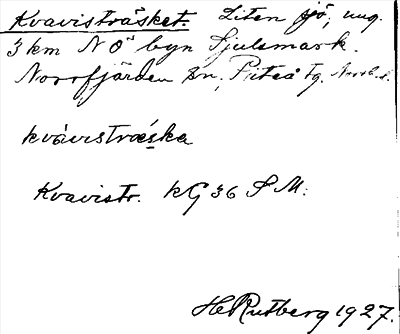 Kvavisträsket. Liten sjö, ung.
3 km N O byn Sjulsmark.
Norrfjärden sn, Piteå tg. Norrb. l.
kvavistræska
Kvavistr. kG 36 S M:
H Rutberg 1927.